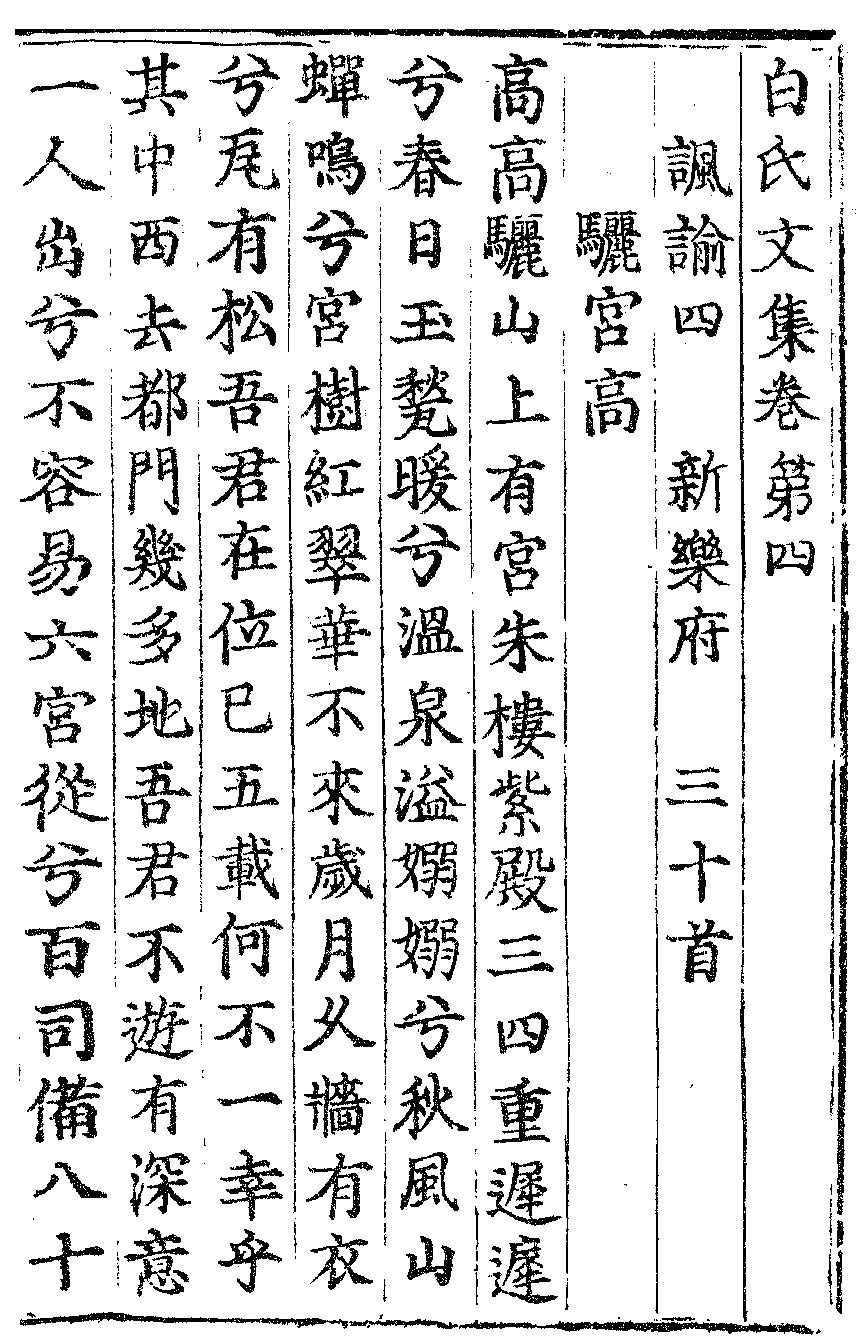 白氏文集卷第四
諷諭四　新樂府　三十首
驪宮高
高高驪山上有宮朱樓紫殿三四重遲遲
兮春日玉甃暖兮溫泉溢嫋嫋兮秋風山
蟬鳴兮宮樹紅翠華不來歲月久牆有衣
兮瓦有松吾君在位已五載何不一幸乎
其中西去都門幾多地吾君不遊有深意
一人出兮不容易六宮從兮百司備八十